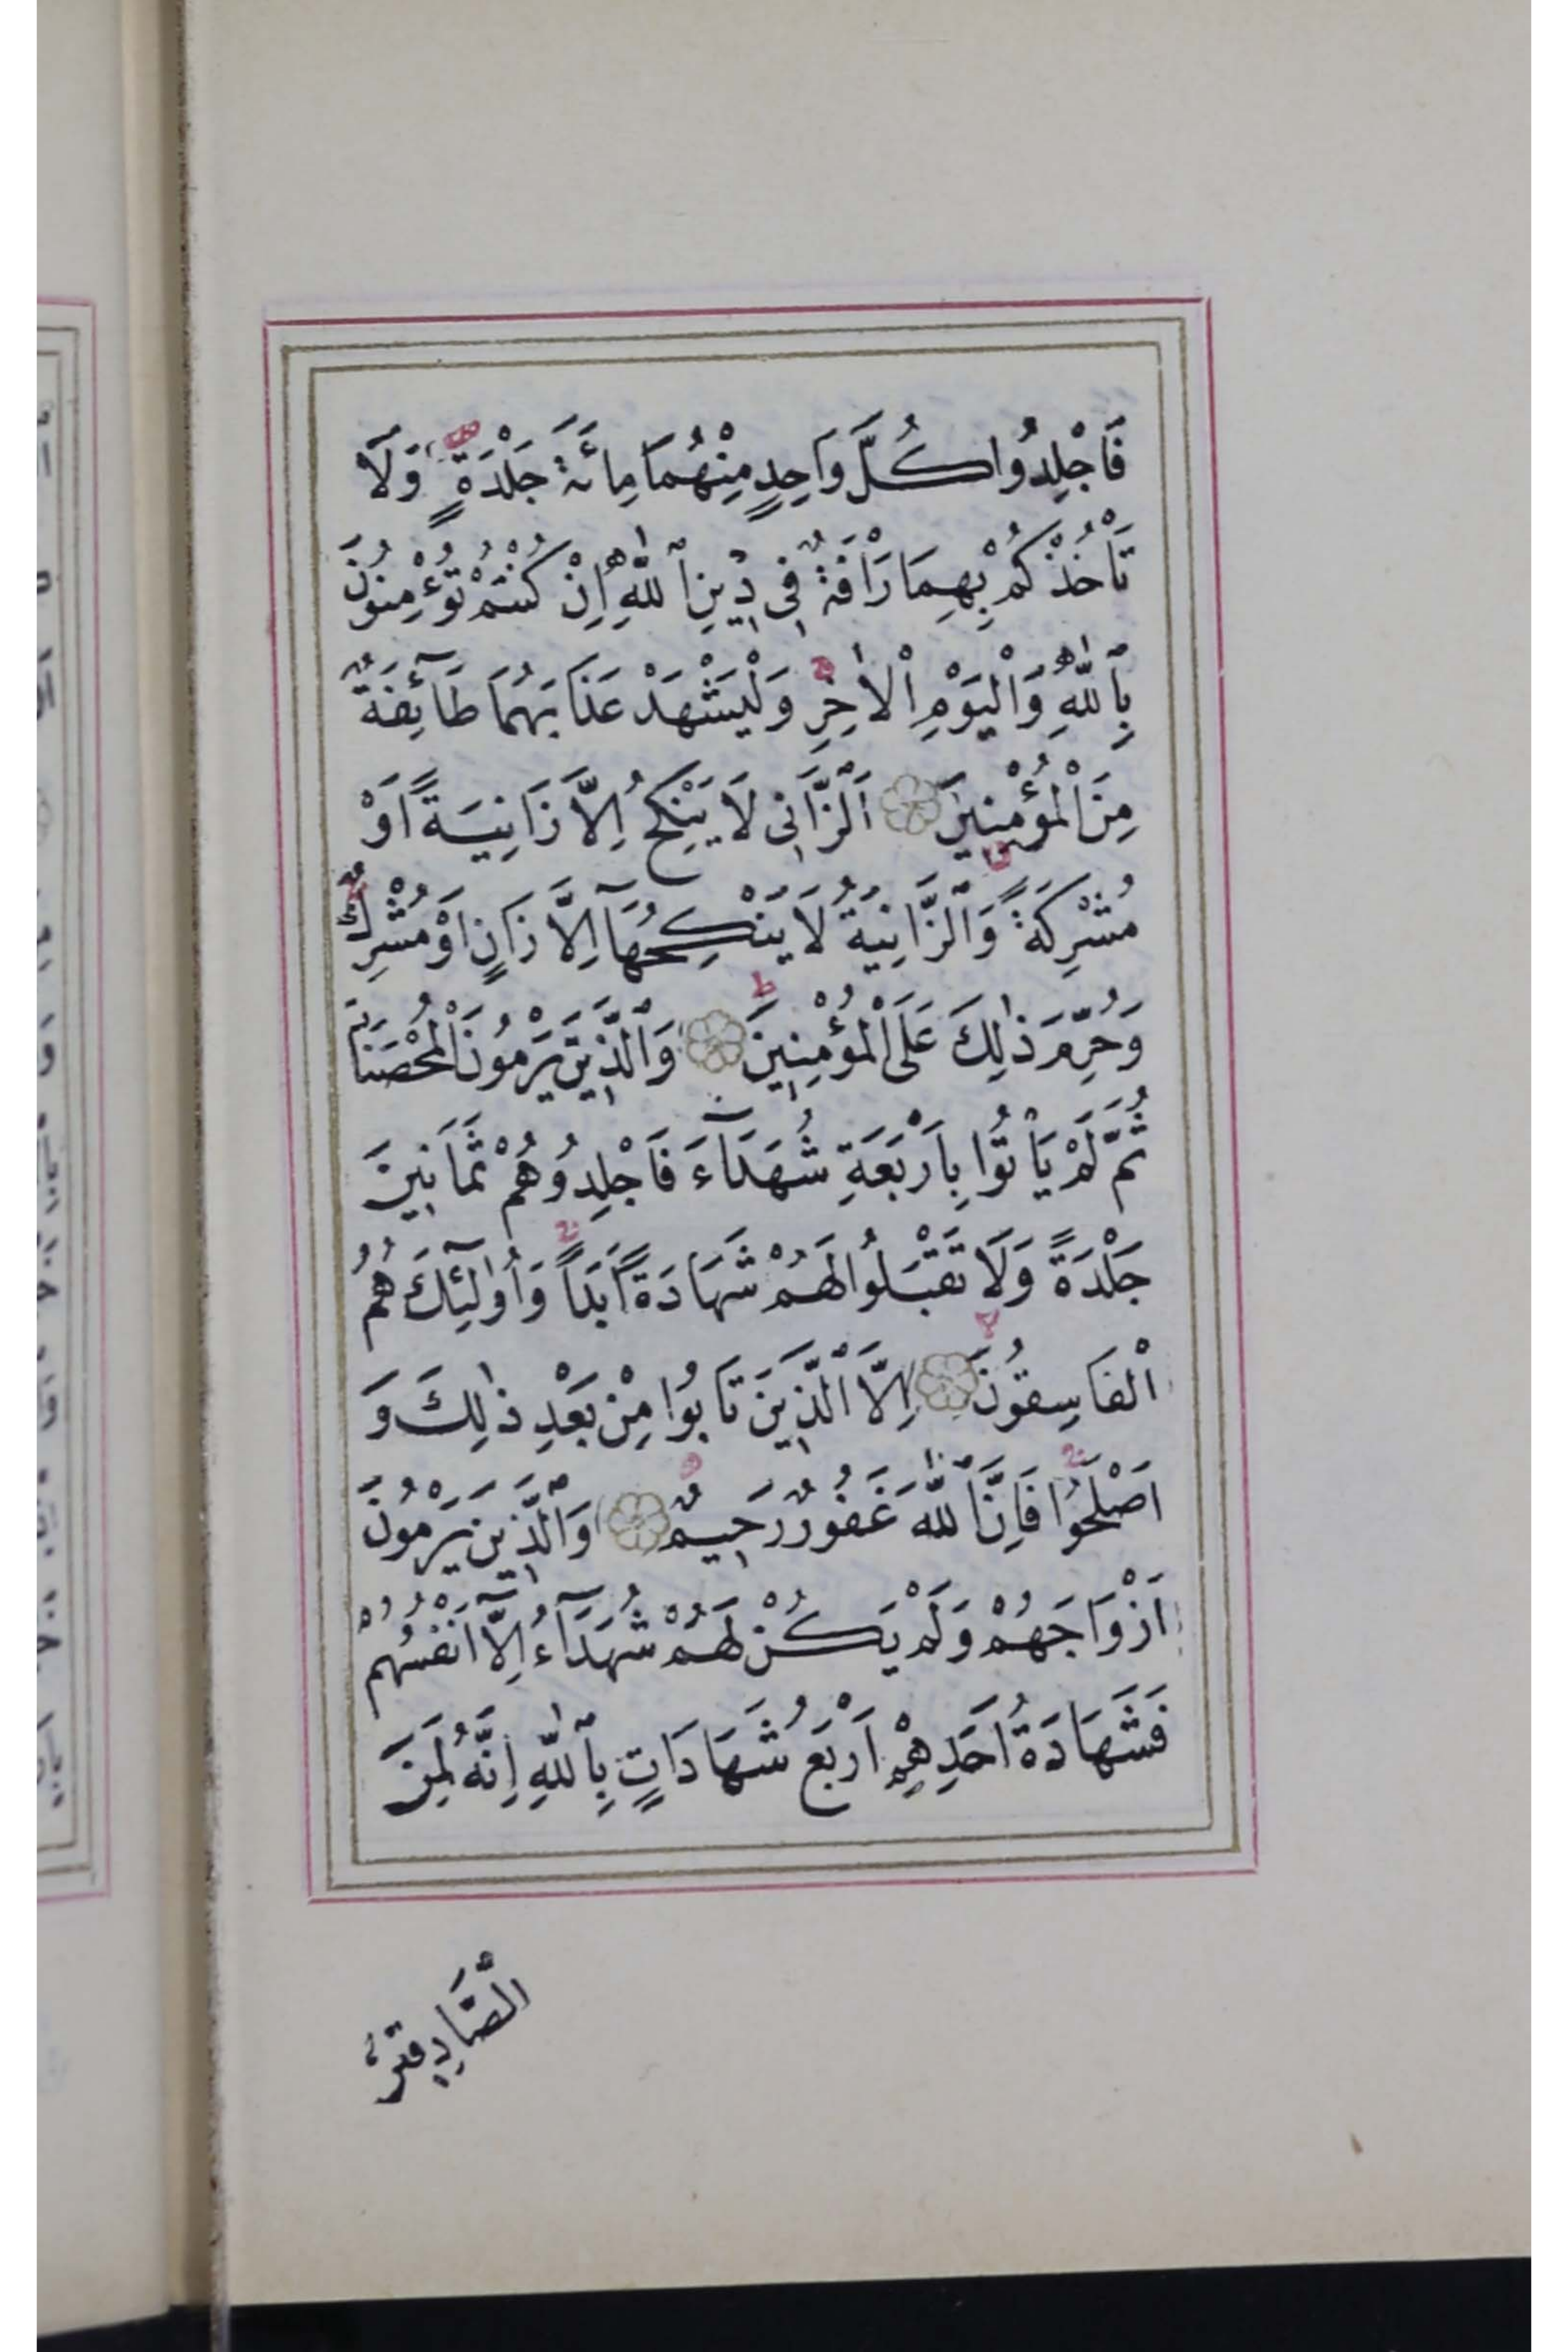 فَاجْلِدُوا كُلَّ وَاحِدٍ مِنْهُمَا مِائَةَ جَلْدَةٍ وَلَا
تَأْخُذْكُمْ بِهِمَا رَأْفَةٌ فِى دِينِ ٱللّٰهِ اِنْ كُنْتُمْ تُؤْمِنُونَ
بِٱللّٰهِ وَٱلْيَوْمِ ٱلْاٰخِرِ وَلْيَشْهَدْ عَذَابَهُمَا طَآئِفَةٌ
مِنَ ٱلْمُؤْمِنِينَ اَلزَّانِى لَا يَنْكِحُ اِلَّا زَانِيَةً اَوْ
مُشْرِكَةً وَٱلزَّانِيَةُ لَا يَنْكِحُهَآ اِلَّا زَانٍ اَوْ مُشْرِكٌ
وَحُرِّمَ ذٰلِكَ عَلَى ٱلْمُؤْمِنِينَ وَٱلَّذِينَ يَرْمُونَ ٱلْمُحْصَنَاتِ
ثُمَّ لَمْ يَأْتُوا بِاَرْبَعَةِ شُهَدَآءَ فَاجْلِدُوهُمْ ثَمَانِينَ
جَلْدَةً وَلَا تَقْبَلُوا لَهُمْ شَهَادَةً اَبَدًا وَاُولٰٓئِكَ هُمُ
ٱلْفَاسِقُونَ اِلَّا ٱلَّذِينَ تَابُوا مِنْ بَعْدِ ذٰلِكَ وَ
اَصْلَحُوا فَاِنَّ ٱللّٰهَ غَفُورٌ رَحِيمٌ وَٱلَّذِينَ يَرْمُونَ
اَزْوَاجَهُمْ وَلَمْ يَكُنْ لَهُمْ شُهَدَآءُ اِلَّآ اَنْفُسُهُمْ
فَشَهَادَةُ اَحَدِهِمْ اَرْبَعُ شَهَادَاتٍ بِٱللّٰهِ اِنَّهُ لَمِنَ
ٱلصَّادِقِينَ